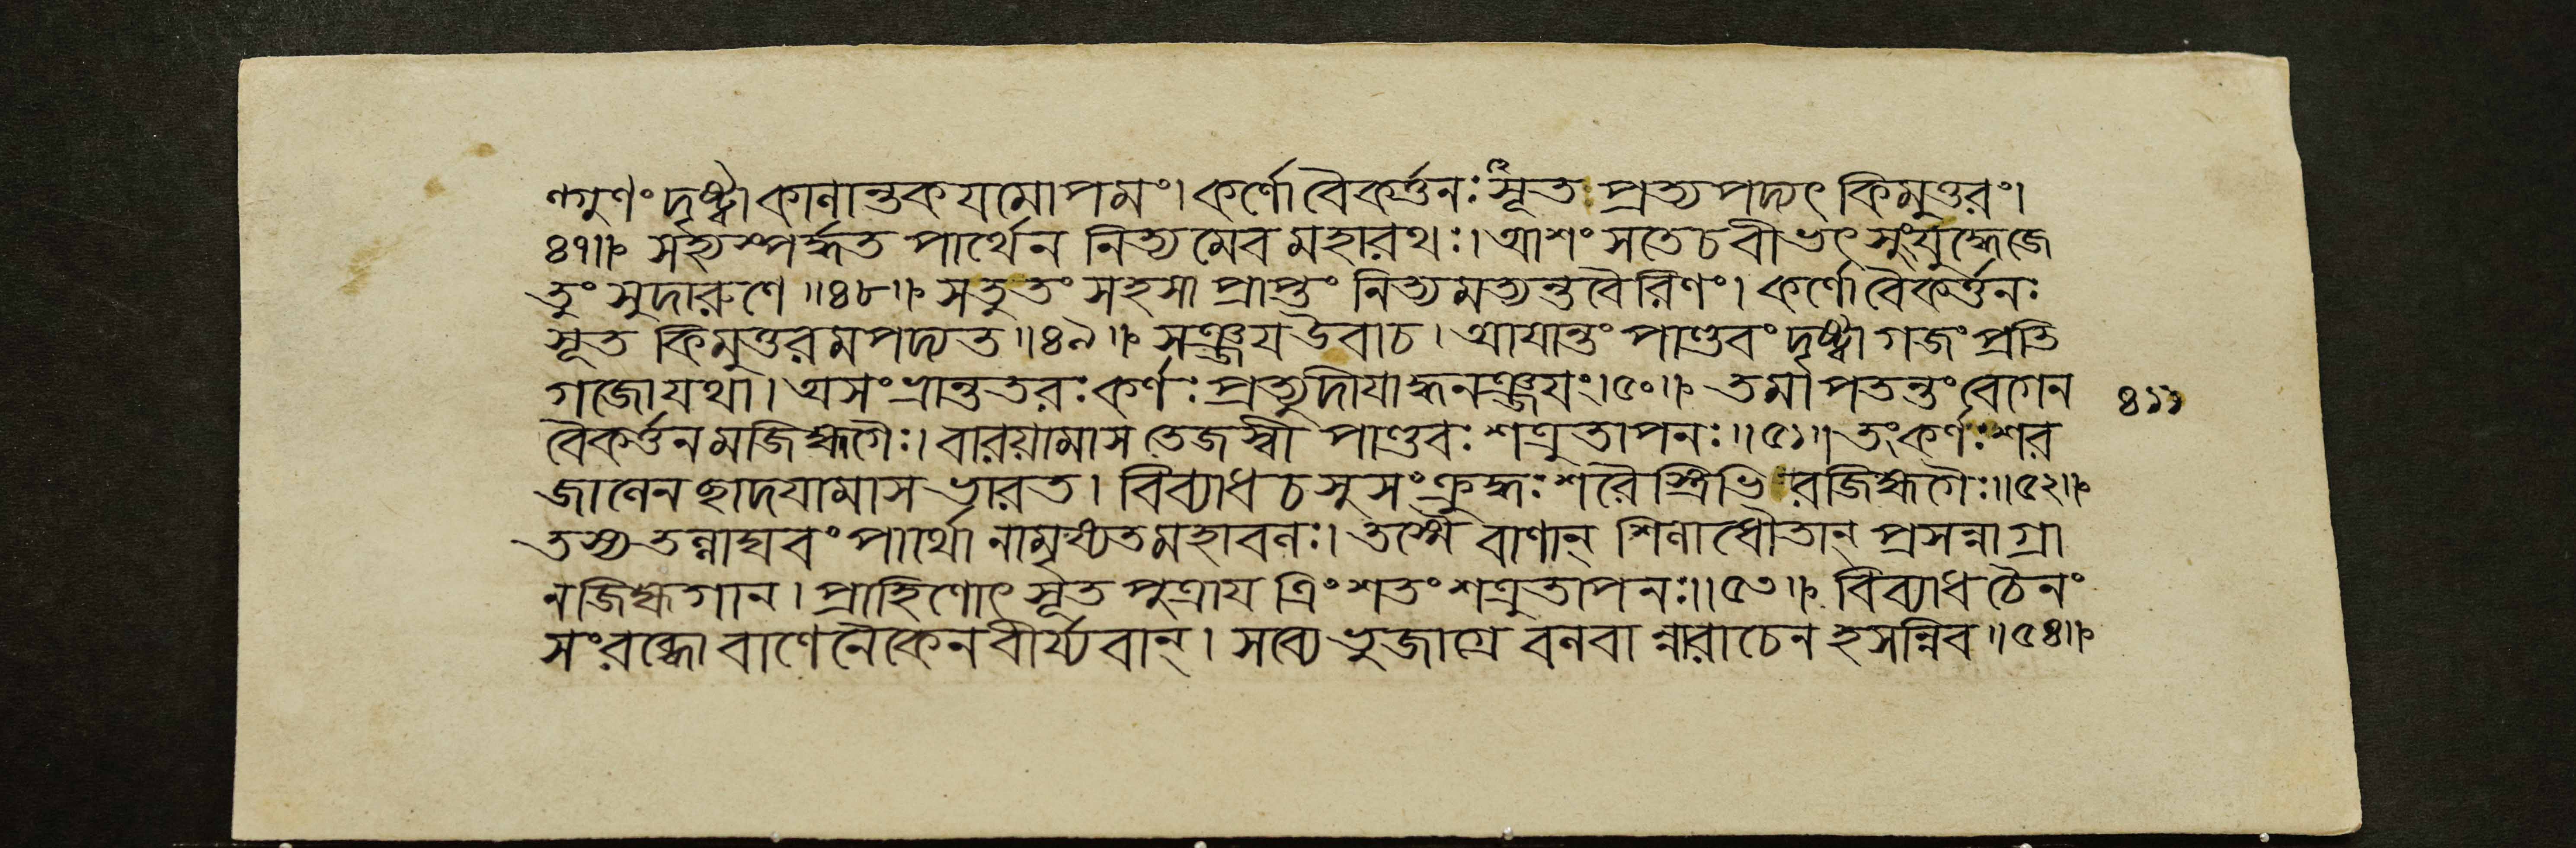 ল্গুণং দৃষ্ট্বা কালান্তকযমোপমং। কর্ণো বৈকর্ত্তনঃ সূত প্রত্যপদ্যৎ কিমুত্তরং।
৪৭॥ সহ্যস্পর্দ্ধত পার্থেন নিত্যমেব মহারথঃ। আশংসতে চ বীভৎসুং যুদ্ধে জে
তুং সুদারুণে॥৪৮॥ সতু তং সহসা প্রাপ্তং নিত্যমত্যন্তবৈরিণং। কর্ণো বৈকর্ত্তনঃ
সূত কিমুত্তরমপদ্যত॥৪৯॥ সঞ্জয উবাচ। আযান্তং পাণ্ডবং দৃষ্ট্বা গজং প্রতি
গজো যথা। অসংভ্রান্ততরঃ কর্ণঃ প্রত্যুদীযাদ্ধনঞ্জযং।৫০॥ তমাপতন্তং বেগেন
বৈকর্ত্তনমজিহ্মগৈঃ। বারয়ামাস তেজস্বী পাণ্ডবঃ শত্রুতাপনঃ॥৫১॥ তং কর্ণঃ শর
জালেন ছাদযামাস ভারত। বিব্যাধ চ সুসংক্রুদ্ধঃ শরৈস্ত্রিভিরজিহ্মগৈঃ॥৫২॥
তস্য তল্লাঘবং পার্থো নামৃষ্যত মহাবলঃ। তস্মৈ বাণান্ শিলাধৌতান্ প্রসন্নাগ্রা
নজিহ্মগান। প্রাহিণোৎ সূতপুত্রায ত্রিংশতং শত্রুতাপনঃ॥৫৩॥ বিব্যাধ চৈনং
সংরব্ধো বাণেনৈকেন বীর্য্যবান্। সব্যে ভুজাগ্রে বলবান্নারাচেন হসন্নিব॥৫৪॥
৪১১